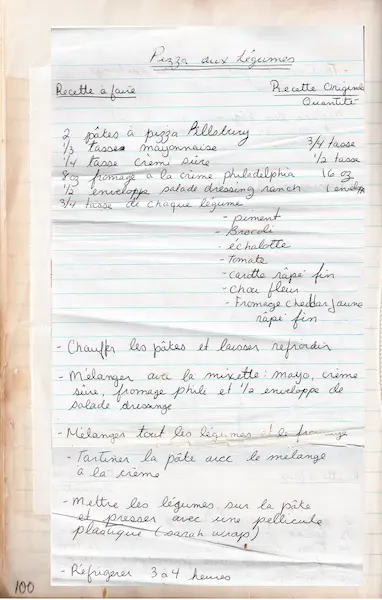 Pizza aux Légumes
Recette à faire Recette Origine
Quantité
2 pâtes à pizza Pillsbury
1/3 tasse mayonnaise 3/4 tasse
1/4 tasse crème sûre 1/2 tasse
8 oz fromage à la crème philedelphia 16 oz
1/2 enveloppe salade dressing ranch 1 envelop
3/4 tasse de chaque légume
- piment
- Brocoli
- échalotte
- Tomate
- carotte râpé fin
- chou fleur
- Fromage cheddar jaune
râpé fin
- Chauffer les pâtes et laisser refroidir
- Mélanger avec la mixette: mayo, crème
sûre, fromage phili et 1/2 enveloppe de
salade dressinge
- Mélanger tout les légumes et le fromage
- Tartiner la pâte avec le mélange
à la crème
- Mettre les légumes sur la pâte
et presser avec une pellicule
plastique (sarah wraps)
- Réfrigérer 3 à 4 heures
100